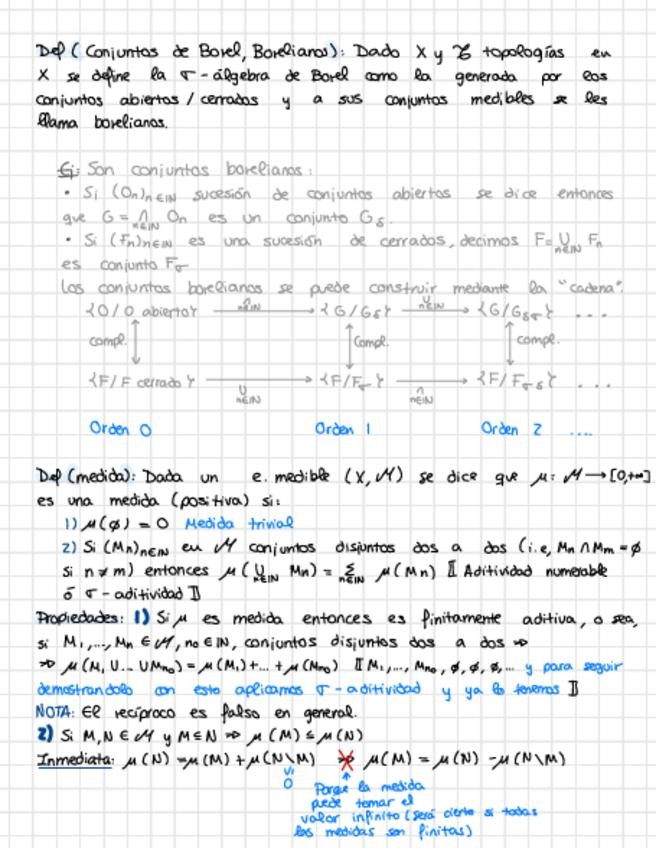 Def (Conjuntos de Borel, Borelianos): Dado X y 𝒯 topologías en
X se define la σ-álgebra de Borel como la generada por los
conjuntos abiertos / cerrados y a sus conjuntos medibles se les
llama borelianos.
Ej: Son conjuntos borelianos:
• Si (On)n∈ℕ sucesión de conjuntos abiertos se dice entonces
que G = ∩n∈ℕ On es un conjunto Gδ.
• Si (Fn)n∈ℕ es una sucesión de cerrados, decimos F = ∪n∈ℕ Fn
es conjunto Fσ
Los conjuntos borelianos se puede construir mediante la "cadena":
{O/O abierto} —∩n∈ℕ→ {G/Gδ} —∪n∈ℕ→ {G/Gδσ} ...
compl. ↕ ↕ compl. ↕ compl.
{F/F cerrado} —∪n∈ℕ→ {F/Fσ} —∩n∈ℕ→ {F/Fσδ} ...
Orden 0 Orden 1 Orden 2 ....
Def (medida): Dada un e. medible (X, ℳ) se dice que μ: ℳ → [0,+∞]
es una medida (positiva) si:
1) μ(∅) = 0 Medida trivial
2) Si (Mn)n∈ℕ en ℳ conjuntos disjuntos dos a dos (i.e, Mn ∩ Mm = ∅
si n ≠ m) entonces μ(∪n∈ℕ Mn) = Σn∈ℕ μ(Mn) ⟦ Aditividad numerable
ó σ-aditividad ⟧
Propiedades: 1) Si μ es medida entonces es finitamente aditiva, o sea,
si M1, ..., Mn ∈ ℳ, no ∈ ℕ, conjuntos disjuntos dos a dos ⇒
⇒ μ(M1 ∪ ... ∪ Mno) = μ(M1) + ... + μ(Mno) ⟦ M1, ..., Mno, ∅, ∅, ∅, ... y para seguir
demostrandolo con esto aplicamos σ-aditividad y ya lo tenemos ⟧
NOTA: El recíproco es falso en general.
2) Si M, N ∈ ℳ y M ⊆ N ⇒ μ(M) ≤ μ(N)
Inmediata: μ(N) = μ(M) + μ(N\M) ⇏ μ(M) = μ(N) - μ(N\M)
≥ 0
Porque la medida
puede tomar el
valor infinito (será cierto si todas
las medidas son finitas)